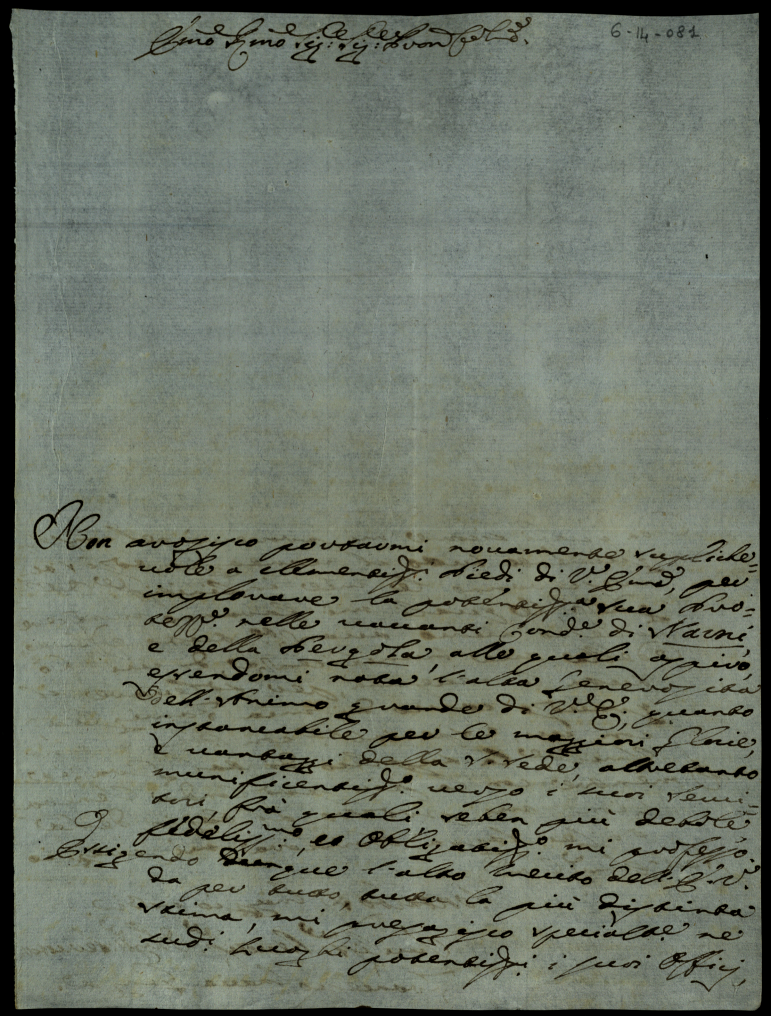 Emo Rmo Sig: Sig: Pron Colmo.
6-14-081
Non ardisco portarmi novamente supliche-
vole a clementissi: Piedi di V. Emã, per
implorare la potentissa: sua Pro-
tezze nelle vacanti Conde di Narni,
e della Pergola, alle quali aspiro,
essendomi nota l'alta Generosità
dell'Animo grande di V. E., quanto
instancabile per le maggiori Glorie,
e vantaggi della S. Sede, altretanto
munificentissi: verso i suoi Servi-
tori, frà quali seben più debole
fedelissmo, et Obligatissmo mi professo.
Esigendo dunque l'alto Merito dell'E. V.
da per tutto, tutta la più distinta
stima, mi presagisco specialte ne
sudi Luoghi potentissi: i suoi Offici,